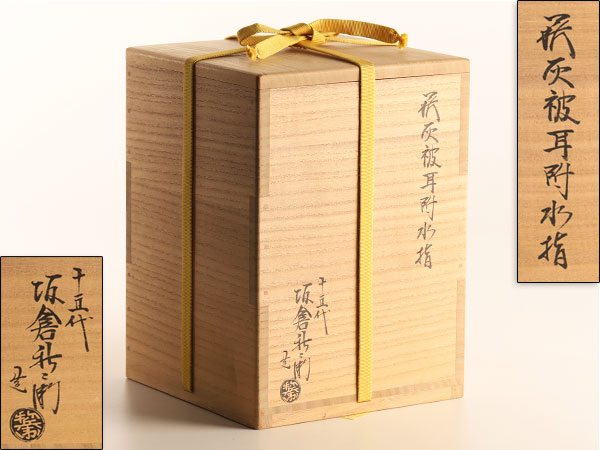 萩灰被耳附水指
萩灰被耳附水指
十五代
坂倉新兵衛
造
十五代
坂倉新兵衛
造